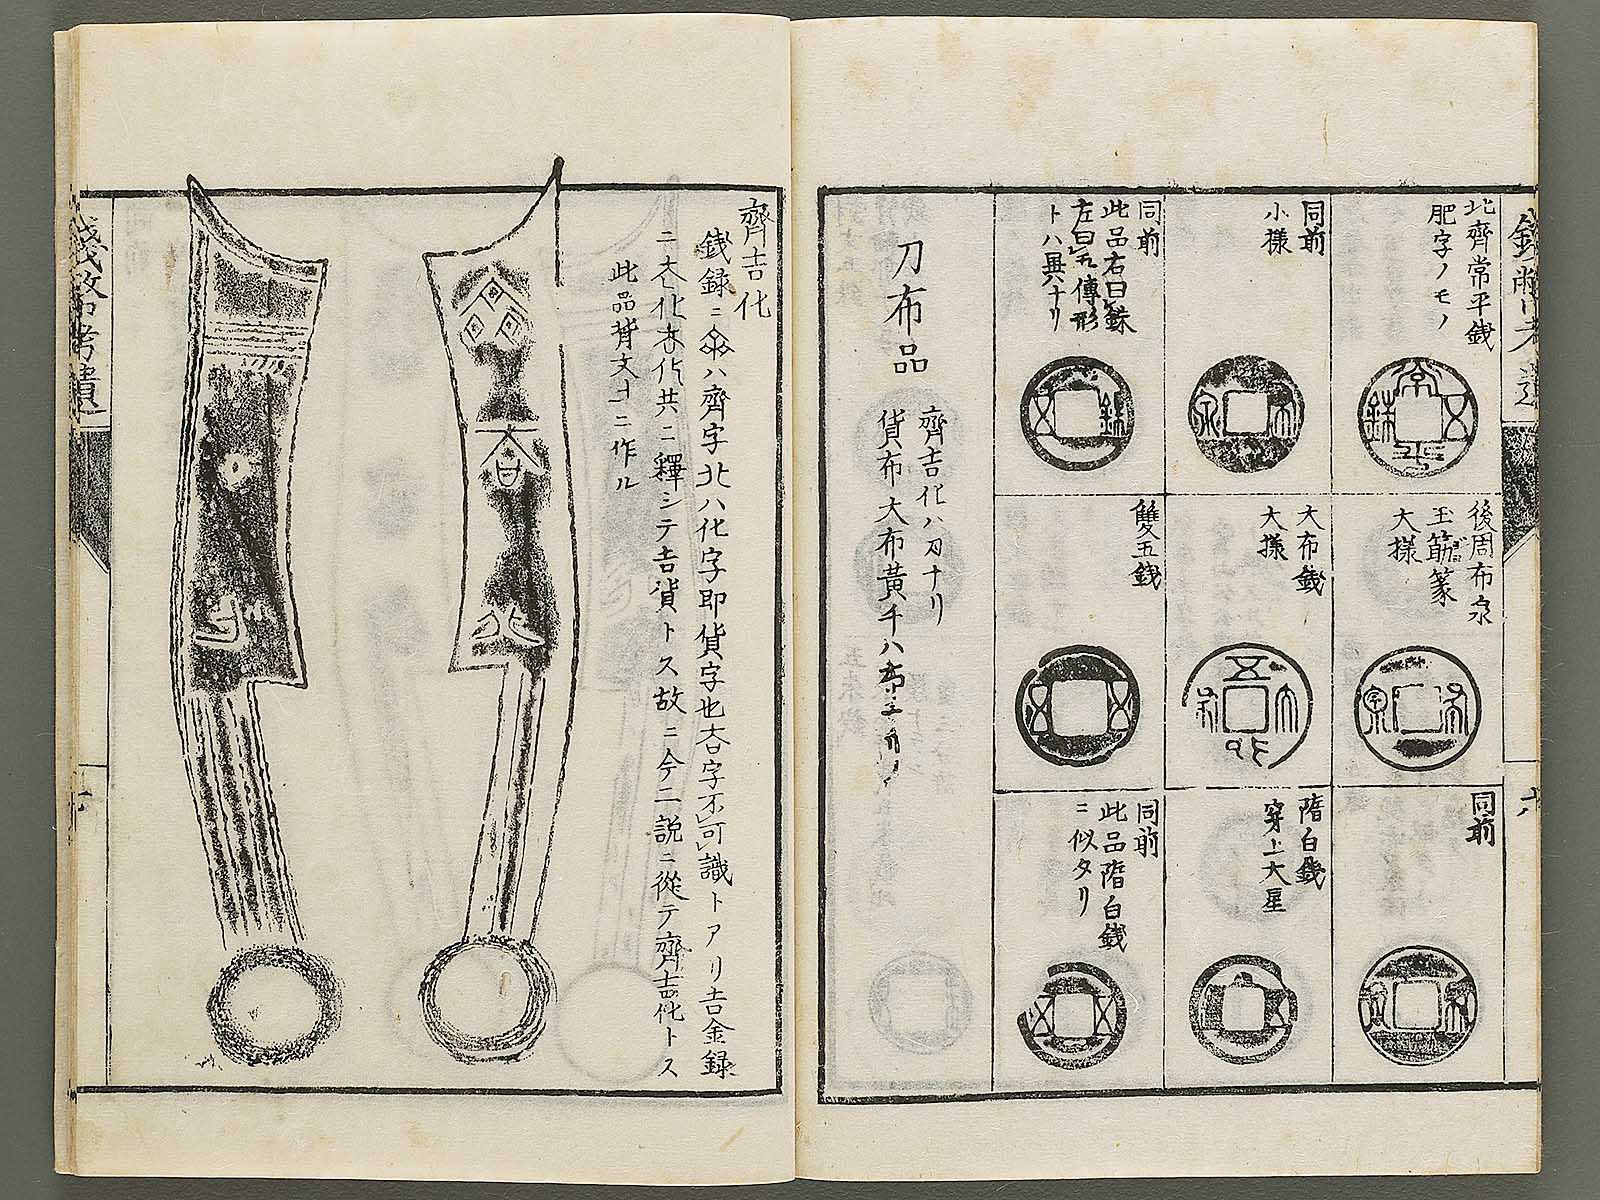 北齊常平銭
肥字ノモノ
同前
小樣
同前
此品右曰銖
左曰五傳形
トハ異ナリ
後周布泉
玉筯篆
大樣
大布銭
大樣
雙五銭
同前
隋白銭
穿上大星
同前
此品隋白銭
ニ似タリ
刀布品
齊吉化ハ刀ナリ
貨布大布黄千ハ布
齊吉化
銭録ニ
ハ齊字北ハ化字即貨字也杏字不可識トアリ吉金録
化共ニ釋シテ吉貨トス故ニ今二説ニ從テ齊吉化トス
此品背文十ニ作ル
錢幣考遺